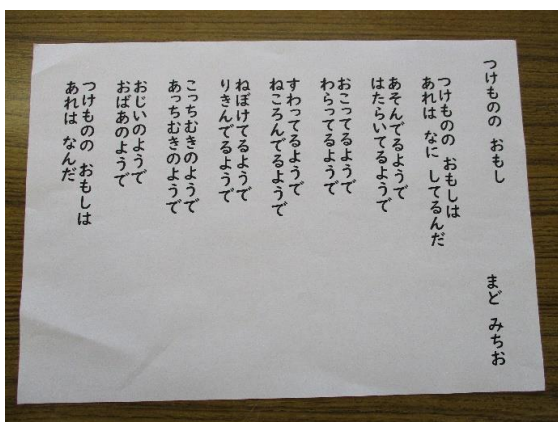 つけものの おもし　まど みちお
つけものの おもしは
あれは なに してるんだ
あそんでるようで
はたらいてるようで
おこってるようで
わらってるようで
すわってるようで
ねころんでるようで
ねぼけてるようで
りきんでるようで
こっちむきのようで
あっちむきのようで
おじいのようで
おばあのようで
つけものの おもしは
あれは なんだ